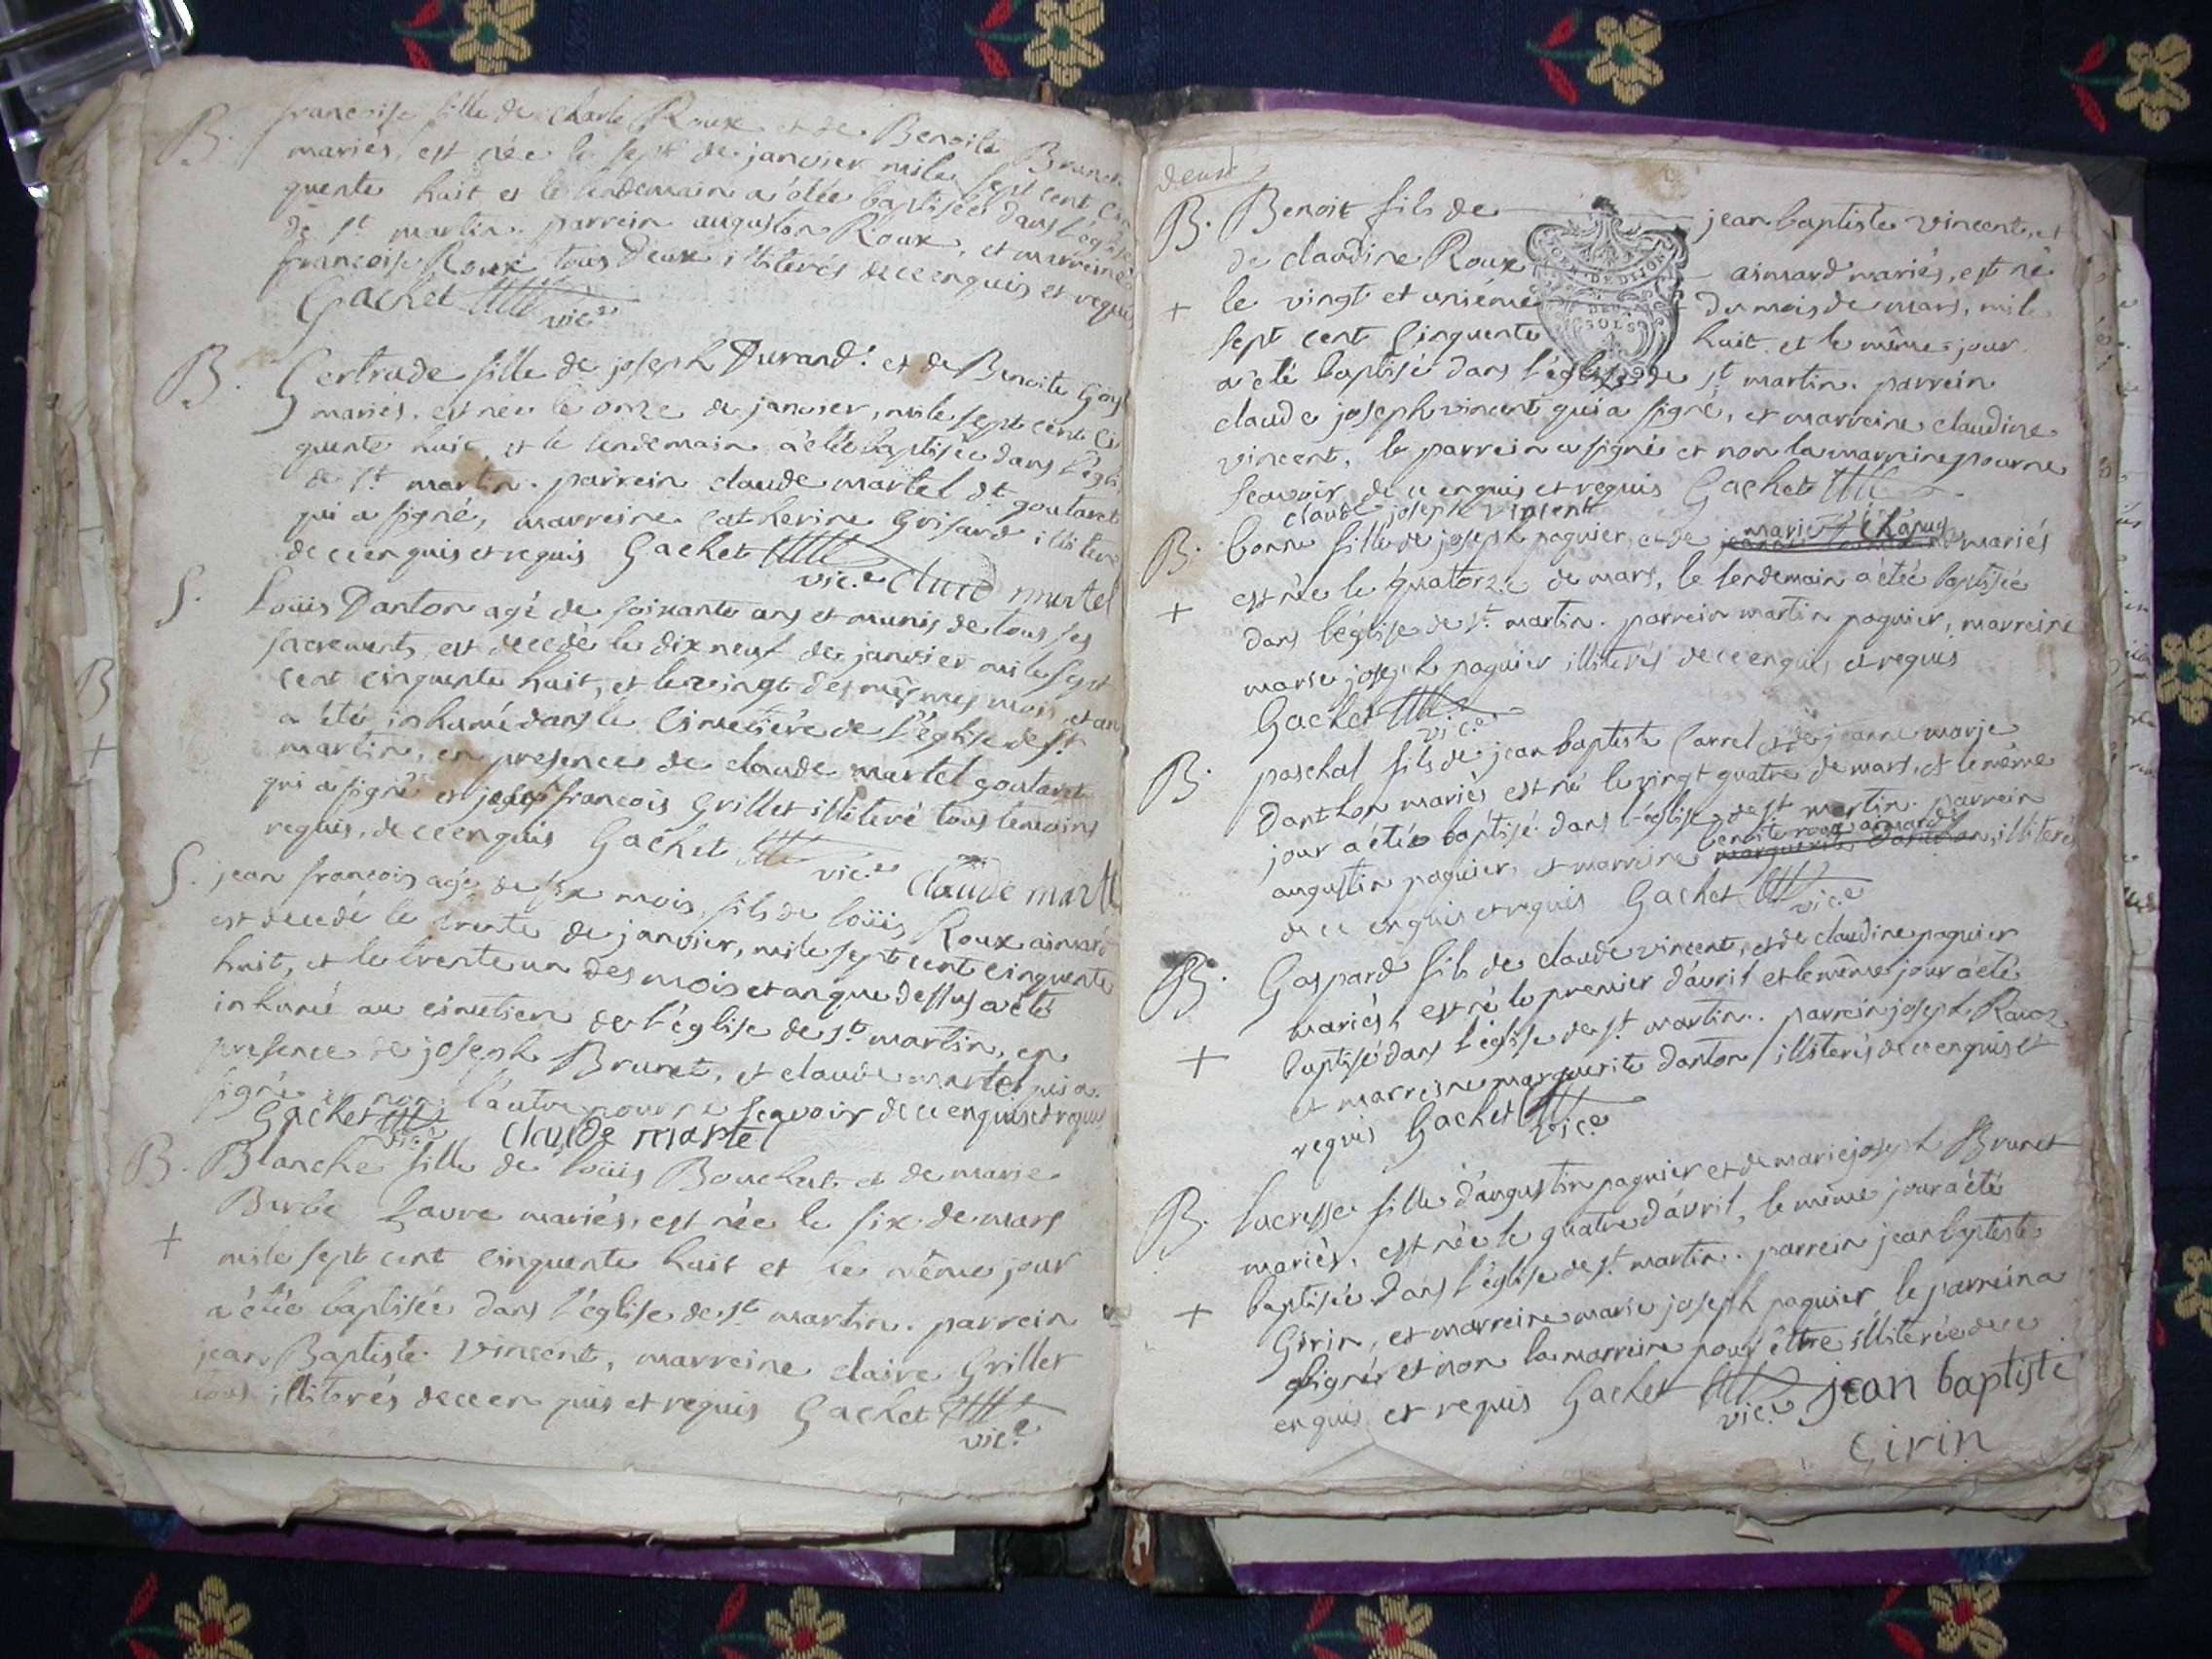 B. francoise fille de charle Roux et de Benoite Brunet
mariés, est née le sept de janvier mile sept cent cin
quente huit et le lendemain a étée baptisée dans l'églis
de st martin. parrein augustin Roux, et marreine
francoise Roux tous deux illiterés de ce enquis et requis
Gachet vic.e
B. Gertrude fille de joseph Durand. et de Benoite
mariés, est née le onze de janvier, mile sept cent ci
quente huit, et le lendemain a étée baptisée dans l'égli
de st martin. parrein claude martel dt goutaret
qui a signé, marreine catherine Grisard illitere
de ce enquis et requis Gachet
vic.e claude martel
S. Loüis Danton agé de soixante ans et munis de tous ses
sacrements, est decedé le dix neuf de janvier mile sept
cent cinquente huit, et le vingt des mêmes mois et an
a été inhumé dans le cimetière de l'église de st
martin, en presence de claude martel goutaret
qui a signé et francois Grillet illiteré tous temoins
requis, de ce enquis Gachet
vic.e claude martel
S. jean francois agé de six mois, fils de loüis Roux aimard
est decedé le trente de janvier, mile sept cent cinquente
huit, et le trente un des mois et an que dessus a été
inhumé au cimetiere de l'église de st martin, en
presence de joseph Brunet, et claude martel qui a
signé et non l'autre pour ne scavoir de ce enquis et requis
Gachet vic.e claude martel
B. Blanche fille de loüis Bouchut et de marie
Barbe favre mariés, est née le six de mars
+ mile sept cent cinquente huit et le même jour
a étée baptisée dans l'église de st martin. parrein
jean Baptiste vincent, marreine claire Grillet
tous illiterés de ce enquis et requis Gachet
vic.e
deux
B. Benoit fils de jean baptiste vincent, et
de claudine Roux aimard mariés, est né
GEN. DE DIJON
DEUX
SOLS
+ le vingt et uniéme du mois de mars, mile
sept cent cinquente huit et le même jour
a été baptisé dans l'église de st martin. parrein
claude joseph vincent qui a signé, et marreine claudine
vincent, le parrein a signé et non la marreine pour ne
scavoir de ce enquis et requis Gachet
claude joseph vincent
B. bonne fille de joseph paquier, et de marie chapuy mariés
+ est née le quatorze de mars, le lendemain a étée baptisée
dans l'église de st martin. parrein martin paquier, marreine
marie joseph paquier illiterés de ce enquis et requis
Gachet
vic.e
B. paschal fils de jean baptiste carrel et de jeanne marie
Danthon mariés est né le vingt quatre de mars, et le même
jour a étée baptisé dans l'église de st martin. parrein
benoite roux aimard
augustin paquier, et marreine marguerite danthon, illiterés
de ce enquis et requis Gachet vic.e
B. Gaspard fils de claude vincent, et de claudine paquier
mariés, est né le premier d'avril et le même jour a été
+ baptisé dans l'église de st martin. parrein joseph Ravoz
et marreine marguerite danton illiterés de ce enquis et
requis Gachet
vic.e
B. lucresse fille d'augustin paquier et de marie joseph Brunet
mariés, est née le quatre d'avril, le même jour a été
+ baptisée dans l'église de st martin. parrein jean baptiste
Girin, et marreine marie joseph paquier le parrein a
signé et non la marreine pour être illiterée de ce
enquis et requis Gachet vic.e jean baptiste
Girin